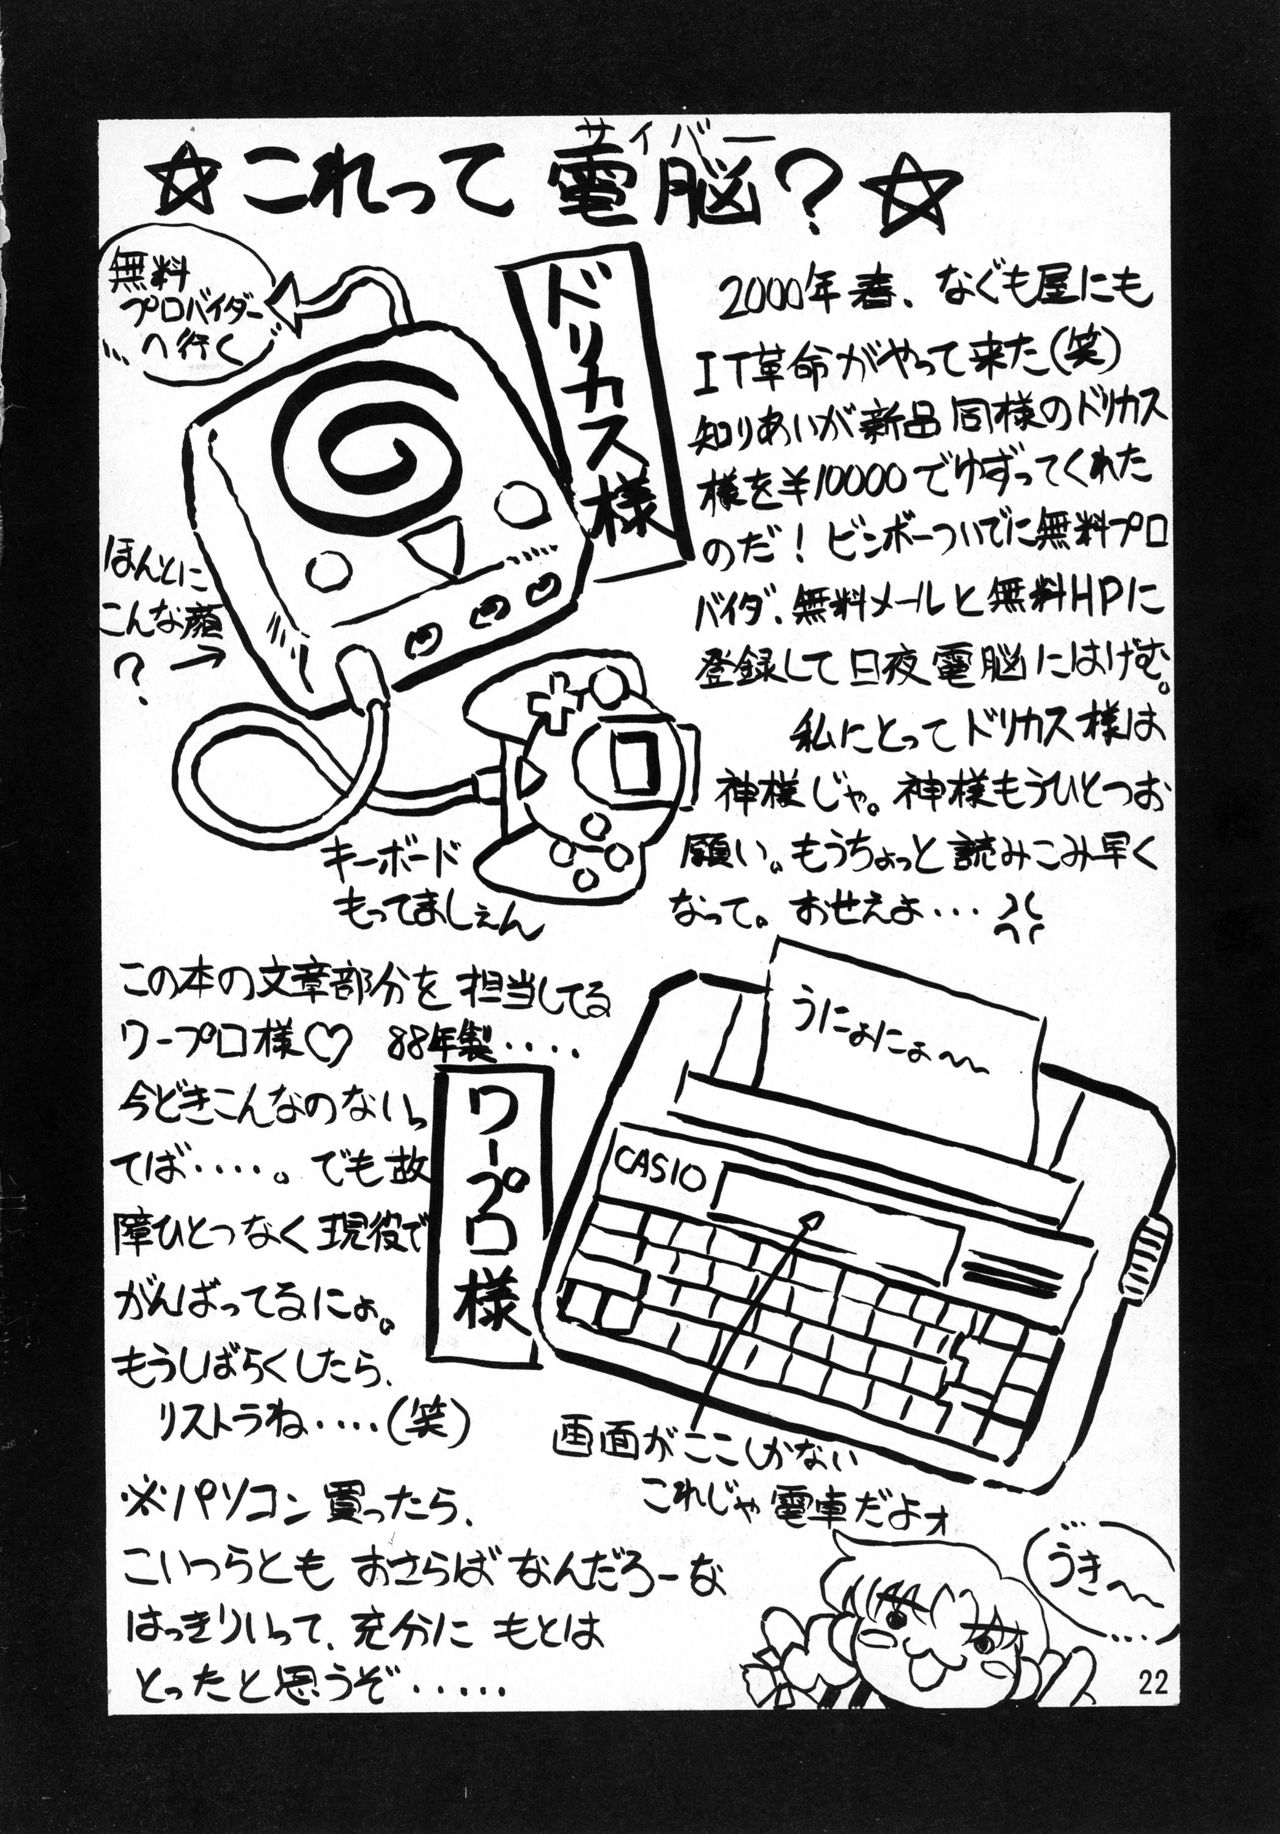 サイバー
☆これって電脳?☆
無料
プロバイダー
へ行く
ドリカス様
2000年春、なぐも屋にも
IT革命がやって来た(笑)
知りあいが新品同様のドリカス
様を¥10000でゆずってくれた
のだ!ビンボーついでに無料プロ
バイダ、無料メールと無料HPに
登録して日夜電脳にはげむ。
私にとってドリカス様は
神様じゃ。神様もうひとつお
願い。もうちょっと読みこみ早く
なって。おせえよ・・・
ほんとに
こんな顔
?→
キーボード
もってましぇん
この本の文章部分を担当してる
ワープロ様♡ 88年製・・・・
今どきこんなのないっ
てば・・・・。でも故
障ひとつなく現役で
がんばってるにょ。
もうしばらくしたら、
リストラね・・・・(笑)
ワープロ様
うにょにょ〜〜
CASIO
画面がここしかない
これじゃ電車だよォ
※パソコン買ったら、
こいつらとも おさらばなんだろーな
はっきりいって、充分に もとは
とったと思うぞ・・・・・
うき〜〜
22